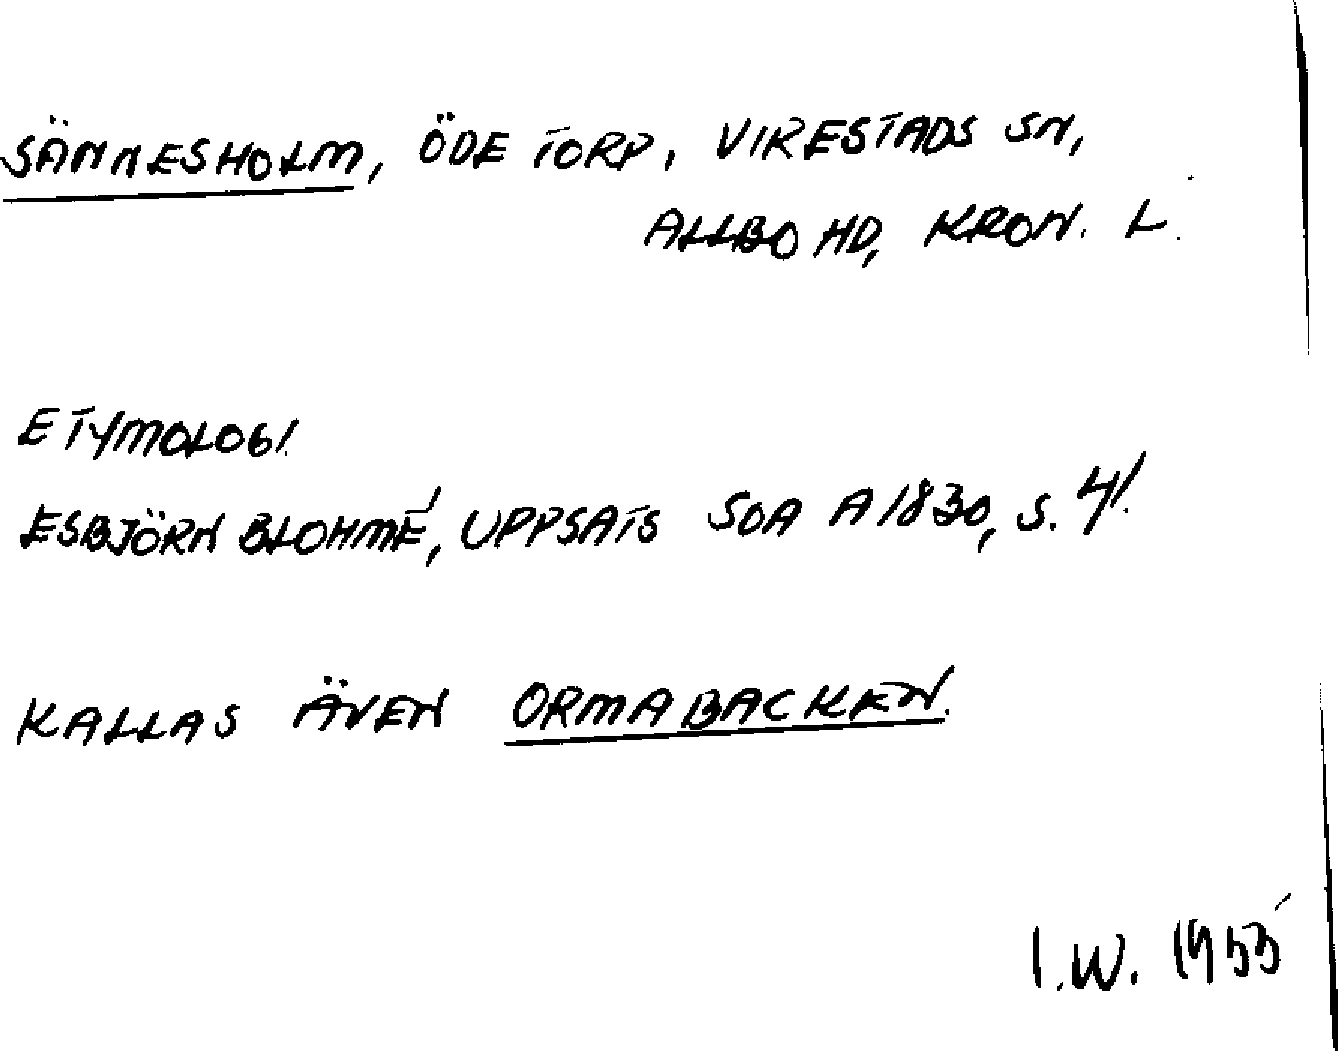 SÄNNESHOLM, ÖDE TORP, VIRESTADS SN,
ALLBO HD, KRON. L.
ETYMOLOGI.
ESBJÖRN BLOHMÉ, UPPSATS SOA A 1830, S. 41.
KALLAS ÄVEN ORMABACKEN.
I.W. 1955